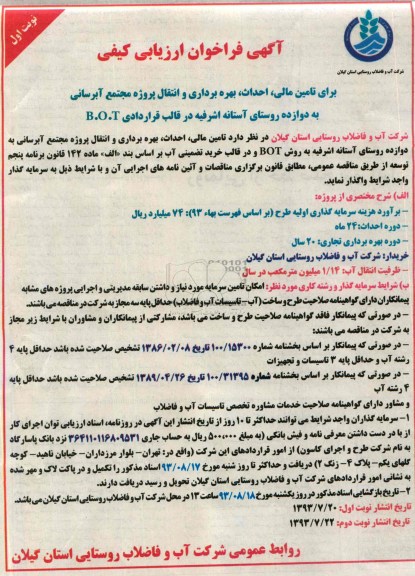 نوبت اول
شرکت آب و فاضلاب روستایی استان گیلان
آگهی فراخوان ارزیابی کیفی
برای تامین مالی، احداث، بهره برداری و انتقال پروژه مجتمع آبرسانی
به دوازده روستای آستانه اشرفیه در قالب قراردادی B.O.T
شرکت آب و فاضلاب روستایی استان گیلان در نظر دارد تامین مالی، احداث، بهره برداری و انتقال پروژه مجتمع آبرسانی به
دوازده روستای آستانه اشرفیه به روش BOT و در قالب خرید تضمینی آب بر اساس بند «الف» ماده ۱۴۲ قانون برنامه پنجم
توسعه از طریق مناقصه عمومی، مطابق قانون برگزاری مناقصات و آئین نامه های اجرایی آن و با شرایط ذیل به سرمایه گذار
واجد شرایط واگذار نماید.
الف) شرح مختصری از پروژه:
- برآورد هزینه سرمایه گذاری اولیه طرح (بر اساس فهرست بهاء ۹۳): ۷۴ میلیارد ریال
- دوره احداث: ۲۴ ماه
- دوره بهره برداری تجاری: ۲۰ سال
خریدار: شرکت آب و فاضلاب روستایی استان گیلان
- ظرفیت انتقال آب: ۱/۱۴ میلیون مترمکعب در سال
ب) شرایط سرمایه گذار و رشته کاری مورد نظر: امکان تامین سرمایه مورد نیاز و داشتن سابقه مدیریتی و اجرایی پروژه های مشابه
پیمانکاران دارای گواهینامه صلاحیت طرح و ساخت (آب - تاسیسات آب و فاضلاب) حداقل پایه سه مجاز به شرکت در مناقصه می باشند.
- در صورتی که پیمانکار فاقد گواهینامه صلاحیت طرح و ساخت می باشد، مشارکتی از پیمانکاران و مشاوران با شرایط زیر مجاز
به شرکت در مناقصه می باشند:
- در صورتی که پیمانکار بر اساس بخشنامه شماره ۱۰۰/۱۵۳۰۰ تاریخ ۱۳۸۶/۰۲/۰۸ تشخیص صلاحیت شده باشد حداقل پایه ۴
رشته آب و حداقل پایه ۳ تاسیسات و تجهیزات
- در صورتی که پیمانکار بر اساس بخشنامه شماره ۱۰۰/۳۱۳۹۵ تاریخ ۱۳۸۹/۰۴/۲۶ تشخیص صلاحیت شده باشد حداقل پایه
۴ رشته آب
و مشاور دارای گواهینامه صلاحیت خدمات مشاوره تخصص تاسیسات آب و فاضلاب
۱- سرمایه گذاران واجد شرایط می توانند حداکثر تا ۱۰ روز از تاریخ انتشار این آگهی در روزنامه، اسناد ارزیابی توان اجرای کار
را با در دست داشتن معرفی نامه و فیش بانکی (به مبلغ ۵۰۰,۰۰۰ ریال به حساب جاری ۳۶۴۱۱۰۱۱۶۸۰۹۵۳۱ نزد بانک پاسارگاد
به نام شرکت طرح و اجرای کاسون) از امور قراردادهای این شرکت (واقع در: تهران - بلوار مرزداران - خیابان ناهید - کوچه
کلهای یکم - پلاک ۴ - زنگ ۲) دریافت و حداکثر تا روز شنبه مورخ ۹۳/۰۸/۱۷ اسناد مذکور را تکمیل و در پاکت لاک و مهر شده
به نشانی امور قراردادهای شرکت آب و فاضلاب روستایی استان گیلان تحویل و رسید دریافت دارند.
۲- تاریخ بازگشایی اسناد مذکور در روز یکشنبه مورخ ۹۳/۰۸/۱۸ ساعت ۱۳ در محل شرکت آب و فاضلاب روستایی استان گیلان می باشد.
تاریخ انتشار نوبت اول: ۱۳۹۳/۷/۲۰
تاریخ انتشار نوبت دوم: ۱۳۹۳/۷/۲۲
روابط عمومی شرکت آب و فاضلاب روستایی استان گیلان